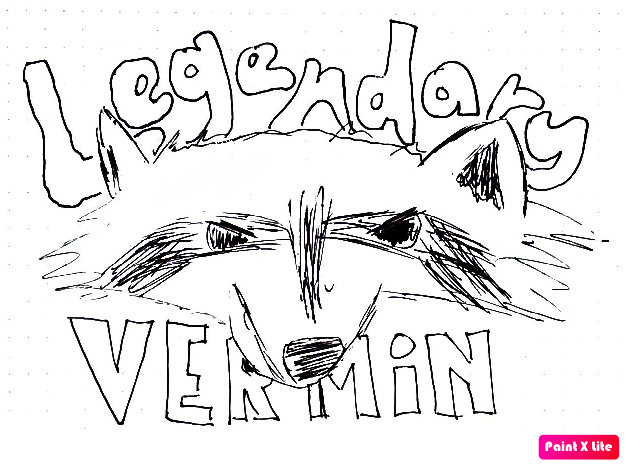 Legendary
VERMiN
Paint X Lite